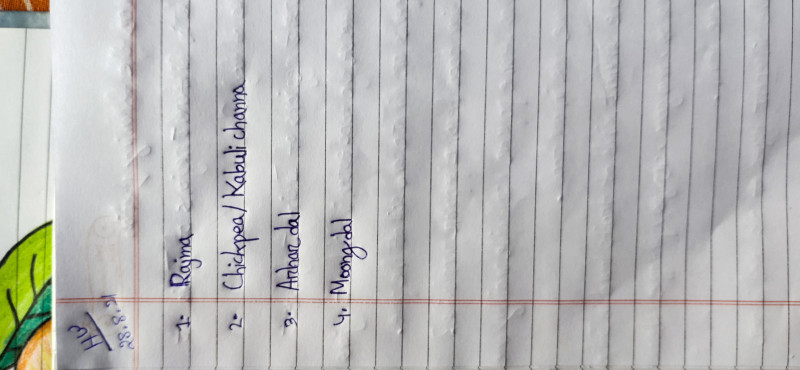 28.8.21
1. Rajma
2. Chickpea/Kabuli channa
3. Arhar dal
4. Moong dal